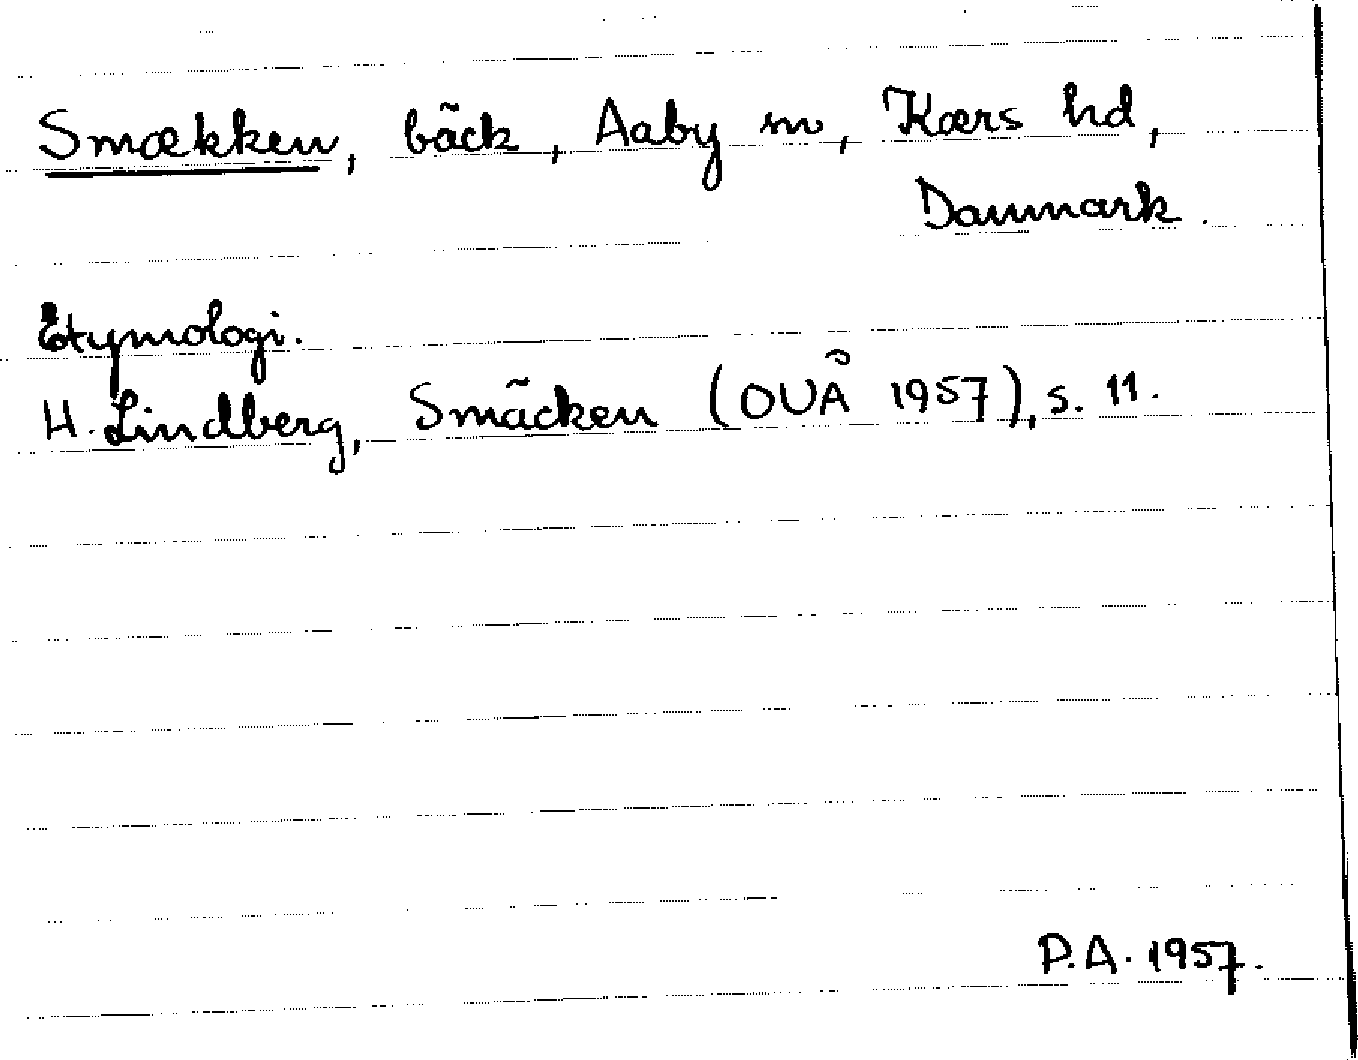 Smækken, bäck, Aaby sn, Kærs hd,
Danmark.
Etymologi.
H. Lindberg, Smäcken (OUÅ 1957), s. 11.
P.A. 1957.